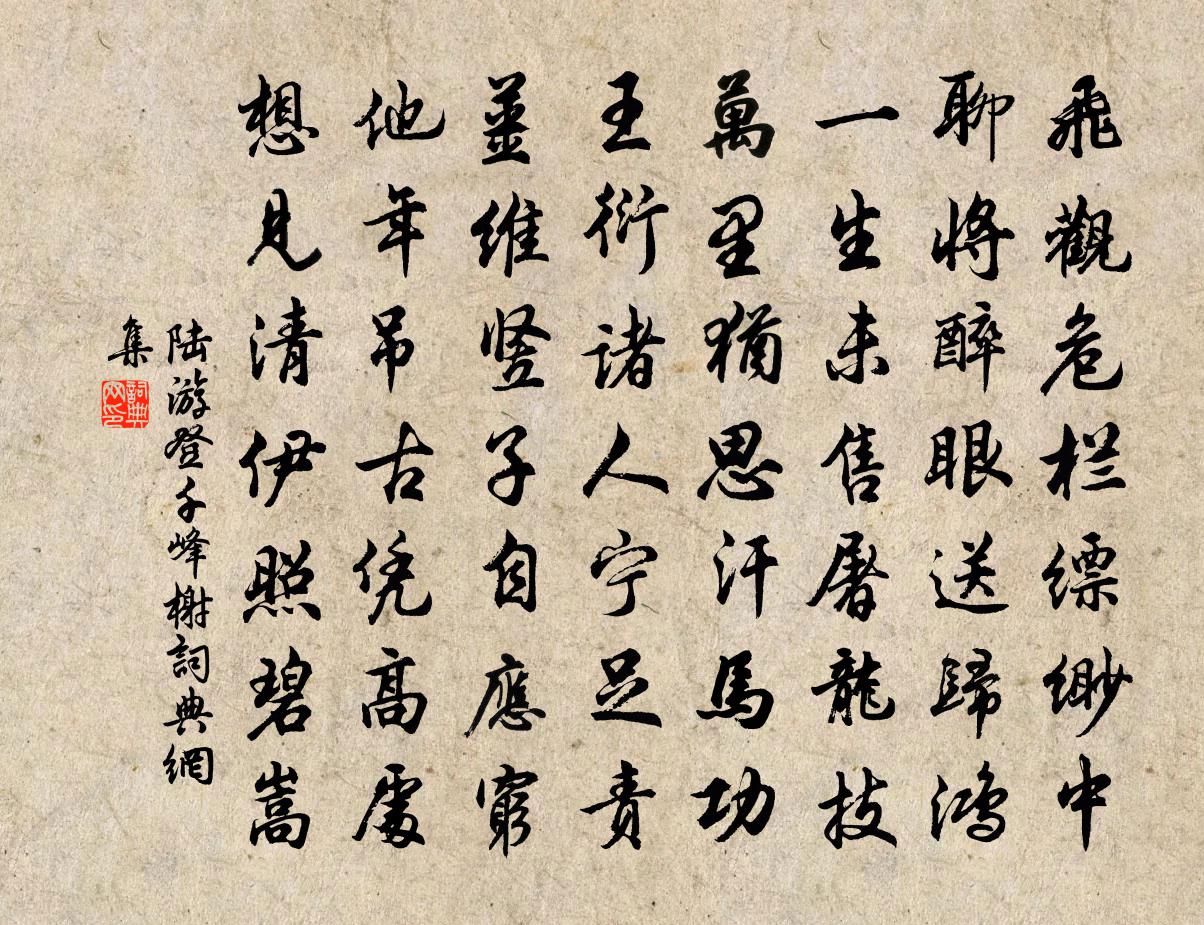 飛觀危栏缥緲中
聊將醉眼送歸鴻
一生未售屠龍技
萬里猶思汗馬功
王衍諸人宁足責
薑維竖子自應窮
他年吊古凭高處
想見清伊照碧嵩
陆游登千峰榭詞典網
集
詞典网印